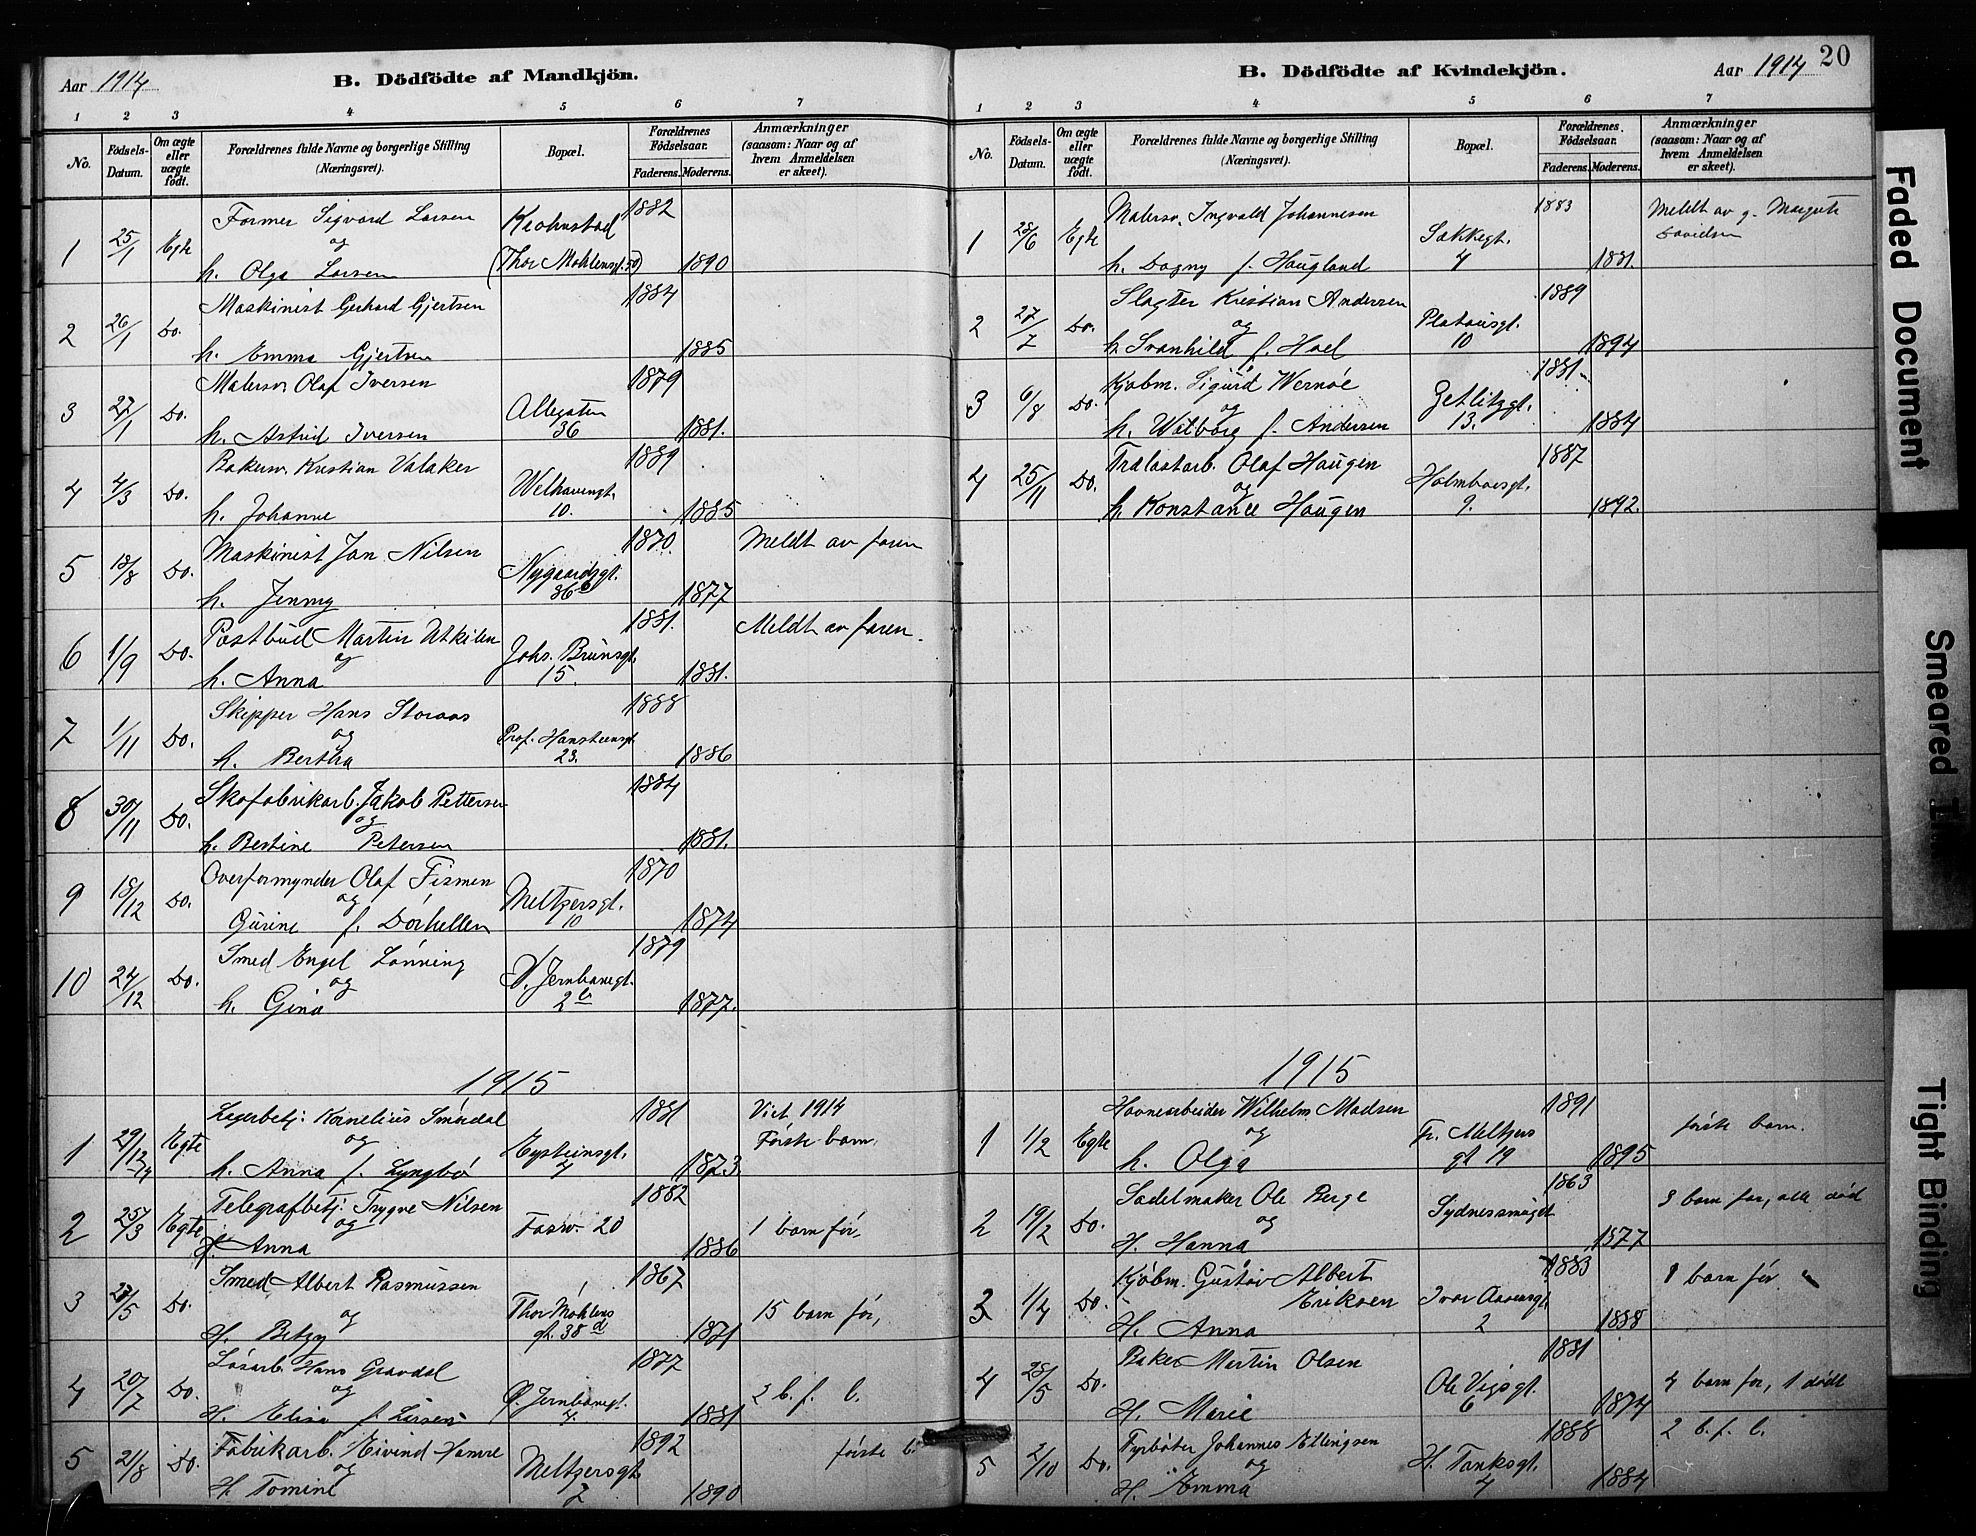 Aar 1914
B. Dödfödte af Mandkjön.
1 2 3 4 5 6 7
No.
Födsels-Datum.
Om ægte eller uægte födt.
Forældrenes fulde Navne og borgerlige Stilling (Næringsvei).
Bopæl.
Forældrenes Födselsaar.
Faderens. Moderens.
Anmærkninger (saasom: Naar og af hvem Anmeldelsen er skeet).
1 25/1 Egte Former Sigvard Larsen Krohnstad 1882
og
h. Olga Larsen (Thor Mohlensgt. 50) 1890
2 26/1 Do. Maskinist Gerhard Gjertsen 1884
h. Emma Gjertsen 1885
3 27/1 Do. Malersv. Olaf Iversen Allegaten 36 1879
h. Astrid Iversen 1881.
4 4/3 Do. Bakersv. Kristian Valaker Welhavensgt. 10. 1889
h. Johanne 1885
5 18/8 Do. Maskinist Jan Nilsen Nygaardsgt. 36 1870. Meldt av faren
h. Jenny 1877
6 1/9 Do. Postbud Martin Utkilen Johs. Brunsgt. 15. 1881. Meldt av faren.
og
h. Anna 1881.
7 1/11 Do. Skipper Hans Storaas Prof. Hansteensgt. 23. 1888
og
h. Bertha 1886
8 30/11 Do. Skofabrikarb. Jakob Pettersen 1884
og
h. Bertine Petersen 1881.
9 18/12 Do. Overformynder Olaf Fismen Meltzersgt. 10 1870
og
Gurine f. Dorhellen 1874
10 24/12 Do. Smed Engel Lönning V. Jernbanegt. 2 b 1879
og
h. Gina 1877.
1915
1 29/12-14 Egte Lagerbetj. Kornelius Smördal Eysteinsgt. 4 1881 Viet 1914
og Förste barn.
h. Anna f. Lyngbö 1873
2 25/3 Egte Telegrafbetj. Trygve Nilsen Fosw. 20 1882 1 barn för,
og
h. Anna 1886
3 23/5 Do. Smed Albert Rasmussen Thor Mohlens gt. 38 d 1867 15 barn för,
og
H. Betzy 1871
4 20/7 Do. Lösarb. Hans Gravdal Ö. Jernbanegt. 4. 1877 2 b. f. l.
og
H. Elisa f. Larsen 1881
5 21/8 Do. Fabrikarb. Eivind Hamre Meltzersgt. 2 1892 förste b.
og
H. Tomine 1890
B. Dödfödte af Kvindekjön.
Aar 1914 20
1 2 3 4 5 6 7
No.
Födsels-Datum.
Om ægte eller uægte födt.
Forældrenes fulde Navne og borgerlige Stilling (Næringsvei).
Bopæl.
Forældrenes Födselsaar.
Faderens. Moderens.
Anmærkninger (saasom: Naar og af hvem Anmeldelsen er skeet).
1 28/6 Egte Malersv. Ingvald Johannesen Sakkegt. 4 1883 Meldt av g. Margrete Davidsen
h. Dagny f. Haugland 1881.
2 27/7 Do. Slagter Kristian Andersen Platousgt. 10 1889
og
h. Svanhild f. Hoel 1894
3 6/8 Do. Kjøbm. Sigurd Wernöe Zetlitzgt. 13. 1881
og
h. Walborg f. Andersen 1884
4 25/11 Do. Trælastarb. Olaf Haugen Holmboesgt. 9. 1887
og
h. Konstance Haugen 1892.
1915
1 1/2 Egte Havnearbeider Wilhelm Madsen Fr. Meltzers gt 19 1891 förste barn.
og
h. Olga 1895
2 19/2 Do. Sadelmaker Ole Berge Sydnessmuget 1863 3 barn för, alle död
og
H. Hanna 1877
3 1/4 Do. Kjöbm. Gustav Albert Eriksen Ivar Aasensgt. 2 1883 1 barn för
H. Anna 1888
4 28/5 Do. Baker Martin Olsen Ole Vigsgt. 6 1881 4 barn for, 1 dödt
H. Marie 1874
5 2/10 Do. Fyrböter Johannes Ellingsen H. Tanksgt. 4 1888 2 b. f. l.
og
H. Emma 1884
Faded Document
Smeared
Tight Binding